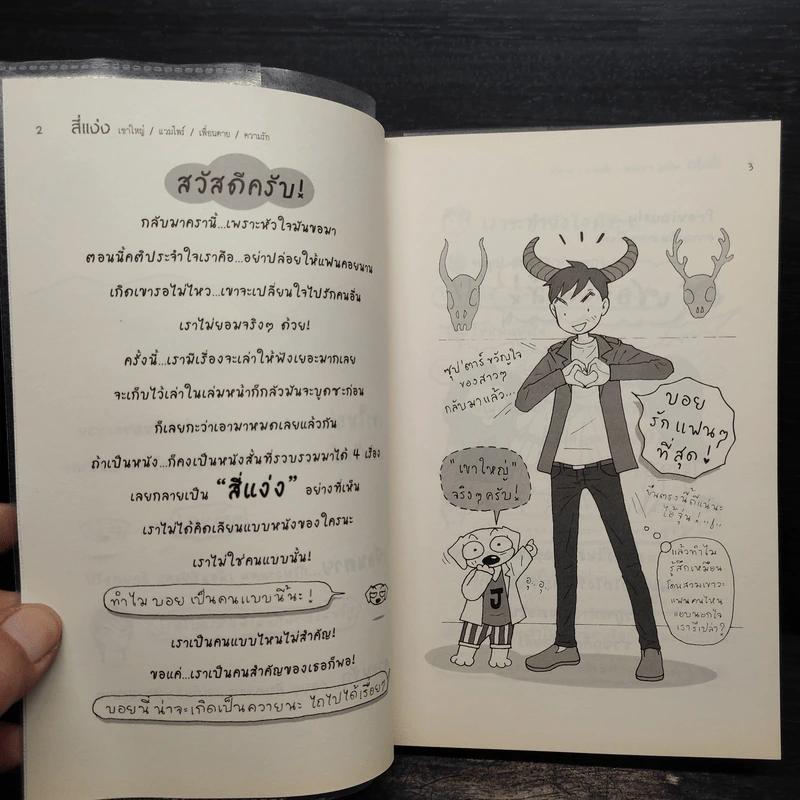 2 สี่แง่ง เขาใหญ่ / แวมไพร์ / เพื่อนตาย / ความรัก
สวัสดีครับ!
กลับมาครานี้...เพราะหัวใจมันขอมา
ตอนนี้คติประจำใจเราคือ...อย่าปล่อยให้แฟนคอยนาน
เกิดเขารอไม่ไหว...เขาจะเปลี่ยนใจไปรักคนอื่น
เราไม่ยอมจริงๆ ด้วย!
ครั้งนี้...เรามีเรื่องจะเล่าให้ฟังเยอะมากเลย
จะเก็บไว้เล่าในเล่มหน้าก็กลัวมันจะบูดซะก่อน
ก็เลยกะว่าเอามาหมดเลยแล้วกัน
ถ้าเป็นหนัง...ก็คงเป็นหนังสั้นที่รวบรวมมาได้ 4 เรื่อง
เลยกลายเป็น "สี่แง่ง" อย่างที่เห็น
เราไม่ได้คิดเลียนแบบหนังของใครนะ
เราไม่ใช่คนแบบนั้น!
ทำไม บอย เป็นคนแบบนี้นะ!
เราเป็นคนแบบไหนไม่สำคัญ!
ขอแค่...เราเป็นคนสำคัญของเธอก็พอ!
บอยนี่ น่าจะเกิดเป็นควายนะ ไถไปได้เรื่อยๆ
3
ซุป'ตาร์ ขวัญใจ
ของสาวๆ
กลับมาแล้ว...
บอย
รัก แฟนๆ
ที่สุด!
"เขาใหญ่"
จริงๆ ครับ!
ยืนตรงนี้ดีแน่นะ
ไอ้จุ่น!..!..
แล้วทำไม
รู้สึกเหมือน
โดนสวมเขาวะ
แฟนคนไหน
แอบนอกใจ
เรารึเปล่า?
อุ..อุ..
J